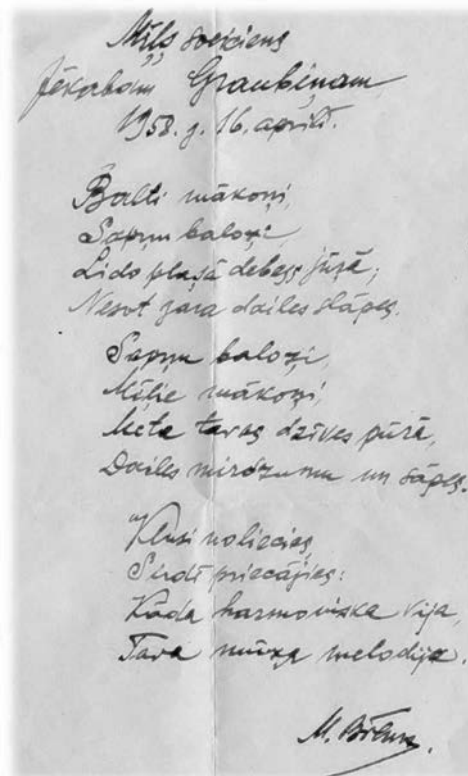 Mīļš sveiciens
Jēkabam Graubiņam
1958. g. 16. aprīlī.
Balti mākoņi,
Sapņu baloži,
Lido plašā debess jūrā;
Nesot gara dailes slāpes.
Sapņu baloži,
Mīļie mākoņi,
Meta tavas dzīves pūrā,
Dailes mirdzumu un sāpes.
Klusi noliecies,
Sirdī priecājies:
Kāda harmoniska vija,
Tava mūža melodija.
M.